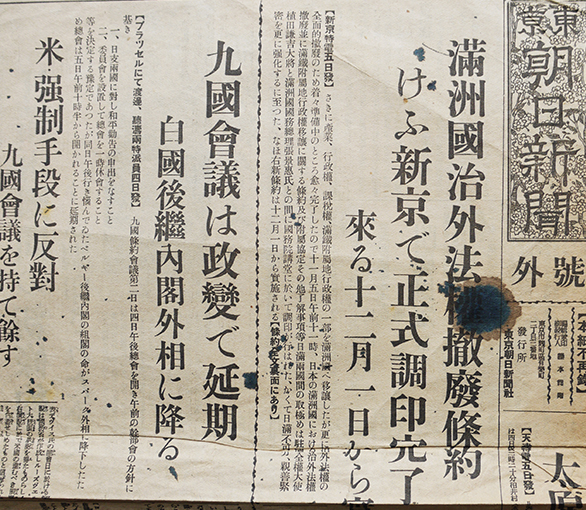 東京朝日新聞
號外
發行所
東京朝日新聞社
滿洲國治外法權撤廢條約
けふ新京で正式調印完了
來る十二月一日から
【新京特電五日發】さきに產業、行政權、課稅權、滿鐵附屬地行政權の一部を滿洲國へ移讓したが更に治外法權の
全面的撤廢のため着々準備中のところ愈々完了したので十一月五日午前十一時、日本の滿洲國における治外法權
撤廢並に滿鐵附屬地行政權移讓に關する條約及び附屬協定その他了解事項等日滿兩國間の取極めは駐滿全權大使
植田謙吉大將と滿洲國國務總理張景惠氏との間に國務院講堂に於いて調印を行はれた、かくて日滿不可分、親善緊
密を更に强化するに至つた、なほ右新條約は十二月一日から實施される【條約全文裏面にあり】
九國會議は政變で延期
白國後繼內閣外相に降る
【ブラッセルにて渡邊、聽濤兩特派員四日發】九國條約會議第二日は四日午後總會を開き午前の幹部會の方針に
基き
一、日支兩國に對し和平勸告の申出をなすこと
二、委員會を設置して總會を一時休會すること
等を決定する豫定であつたが同日午後行き惱んでゐたベルギー後繼內閣の組閣の命がスパーク外相に降下したた
め總會は五日午前十時半から開かれることに延期された
米强制手段に反對
九國會議を持て餘す
【天津特電五日發】
太原